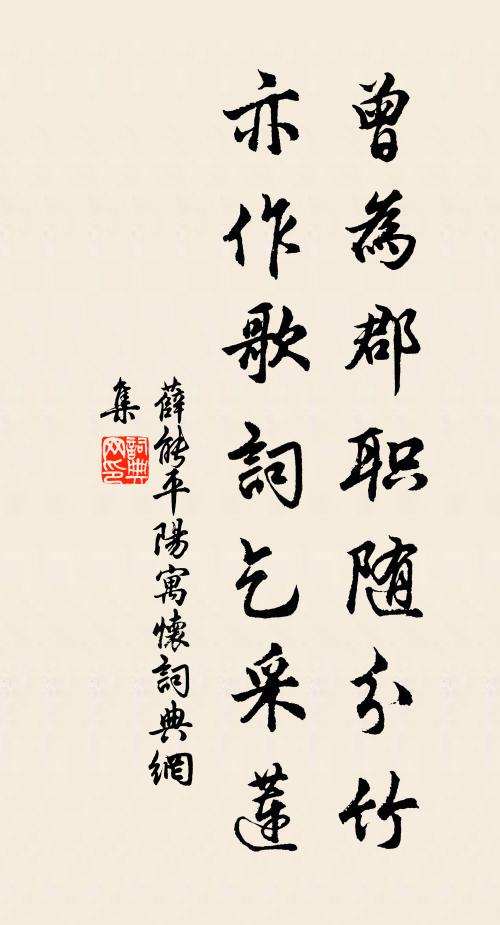 曾為郡职随分竹
亦作歌詞乞采蓮
薛能平陽寓懷詞典網
集
詞典網印